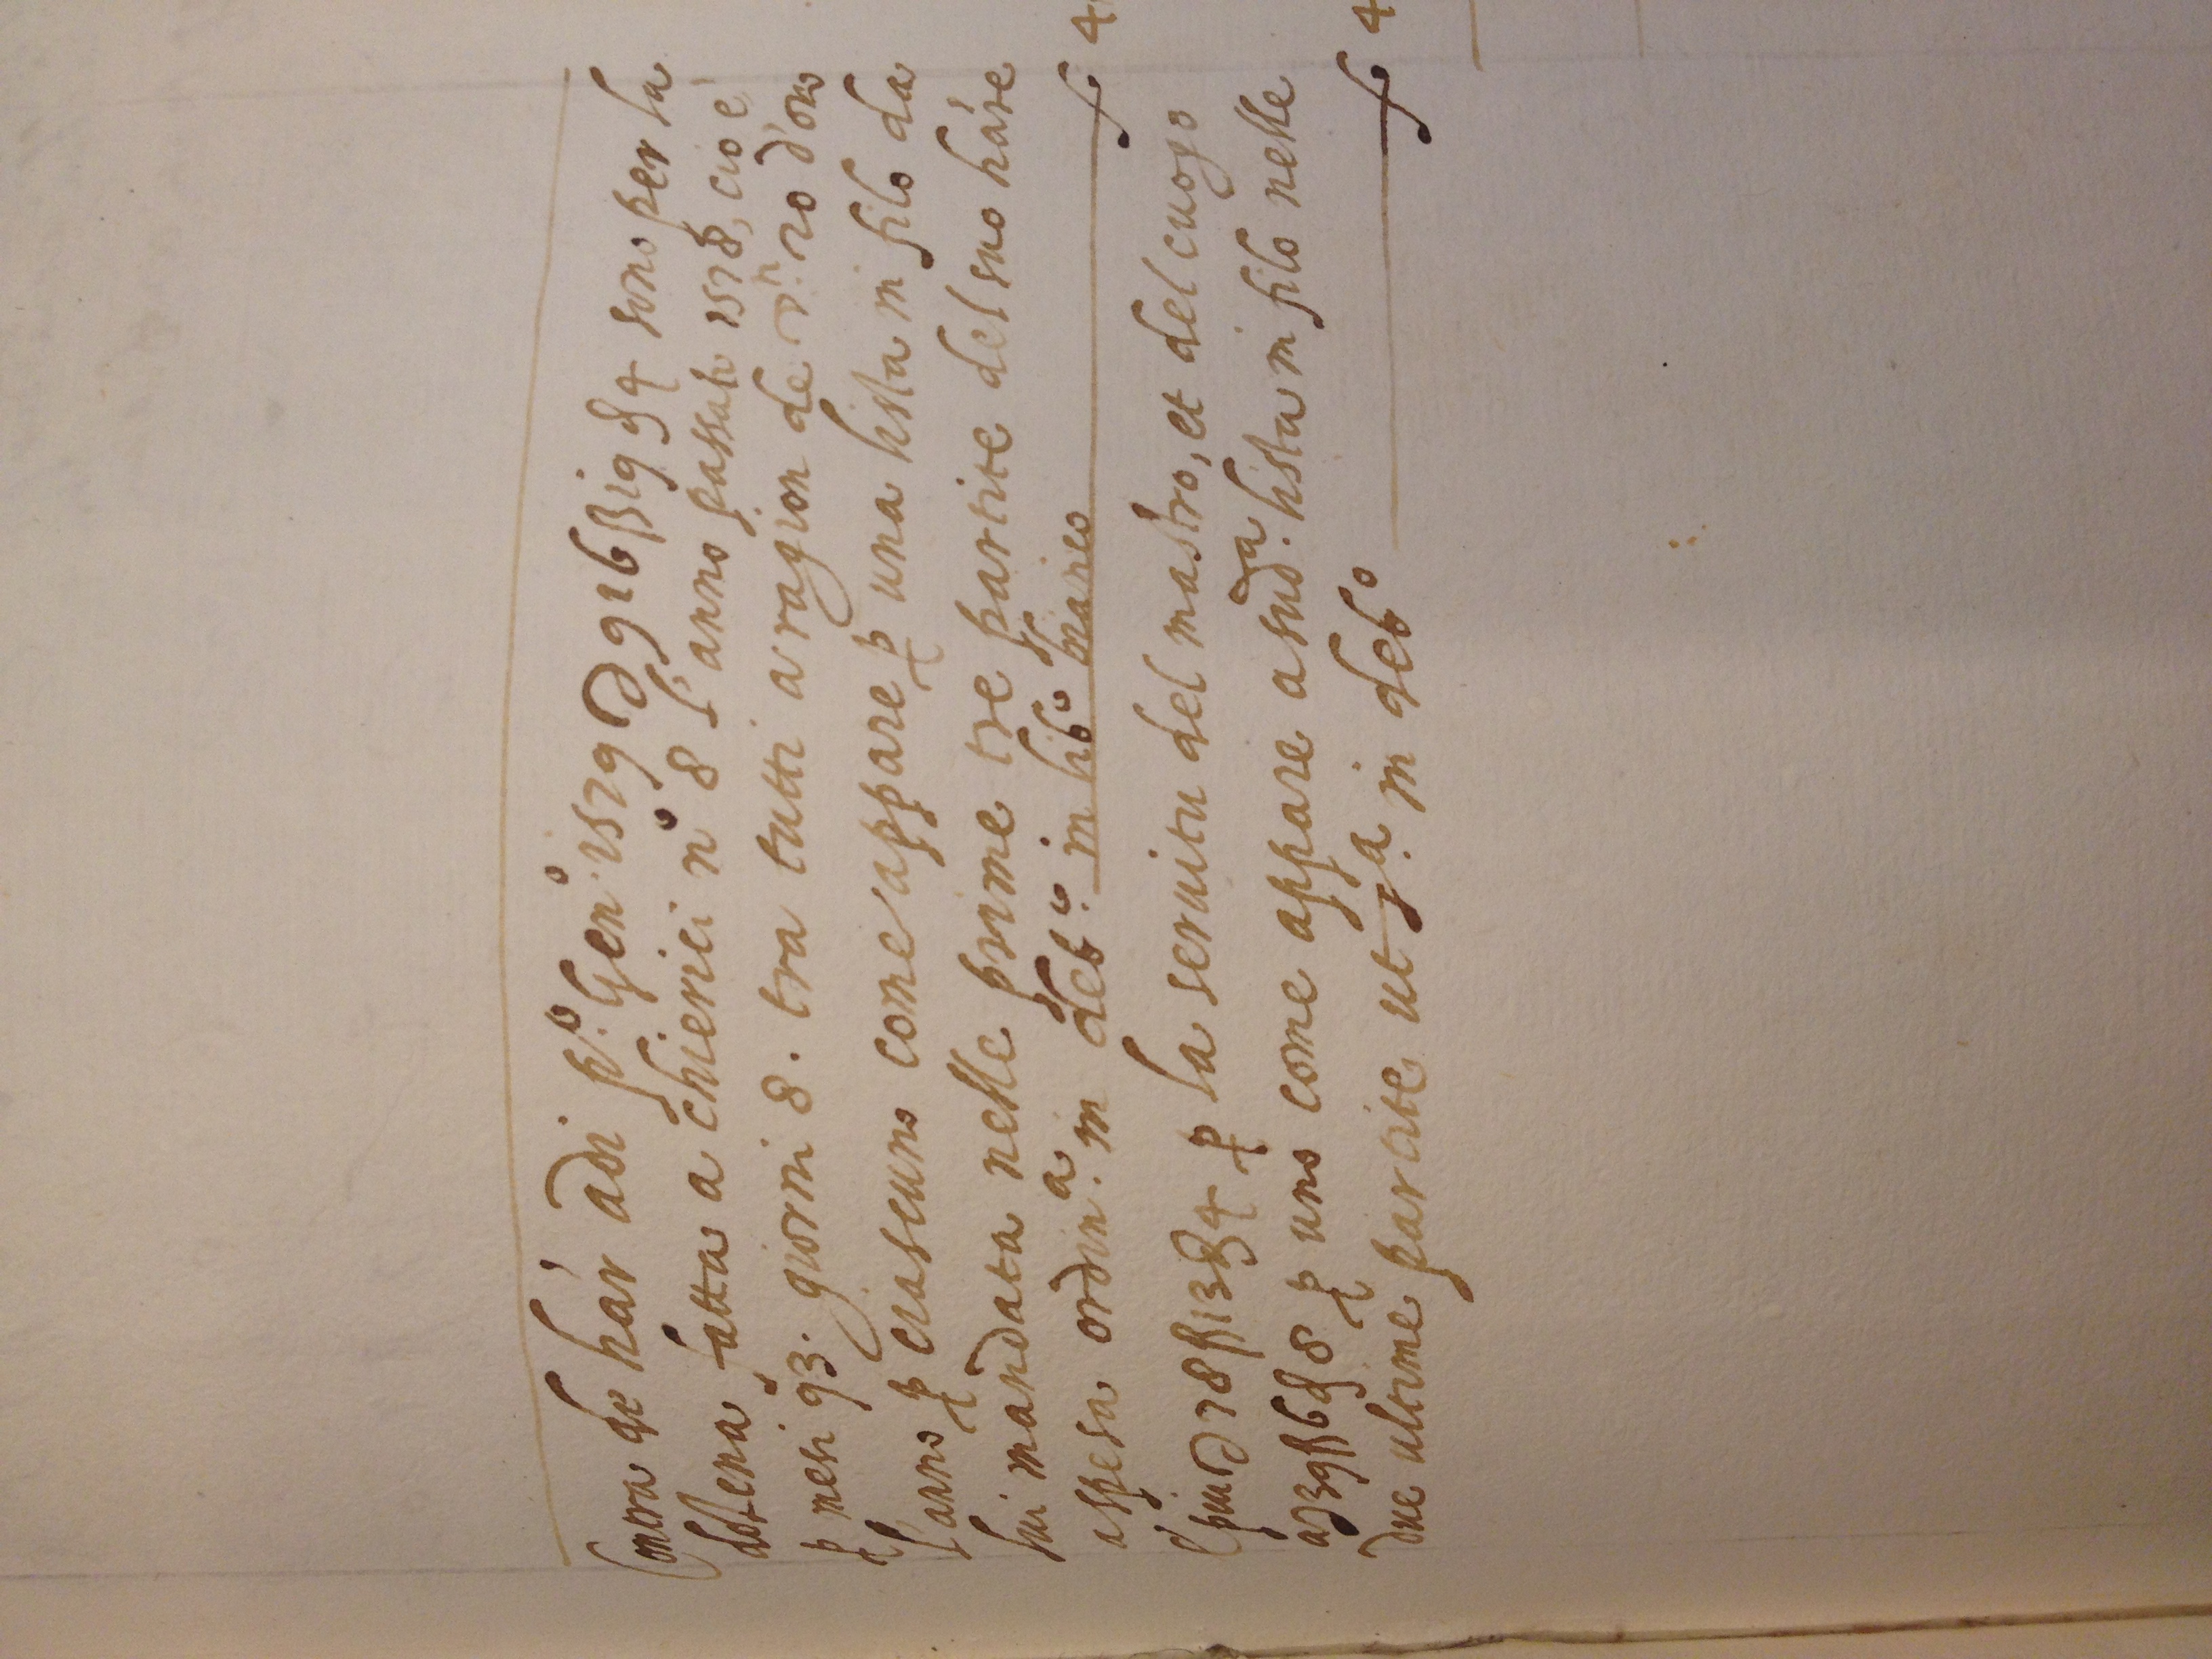 Contra de hár adi p.º Gen.º 1579 D 916 ß 19 ₰ 4 sono per la
dozena fatta a chierici nº 8 l'anno passato 1578, cioè
ꝑ mesi 93. giorni 8. tra tutti a ragion de d.ⁿ 20 d'oro
l'anno ꝑ ciascuno come appare ꝑ una lista in filo da
lui mandata nelle prime tre partite del suo háre
aspesa ordin.ª in deb.º in lib.º bianco f.º 4
E piu D 78 ß 13 ₰ 4 ꝑ la seruitu del mastro, et del cuogo
a D 39 ß 6 ₰ 8 ꝑ uno come appare a sud.ª lista in filo nelle
due ultime partite, ut s.ª in deb.º f.º 4